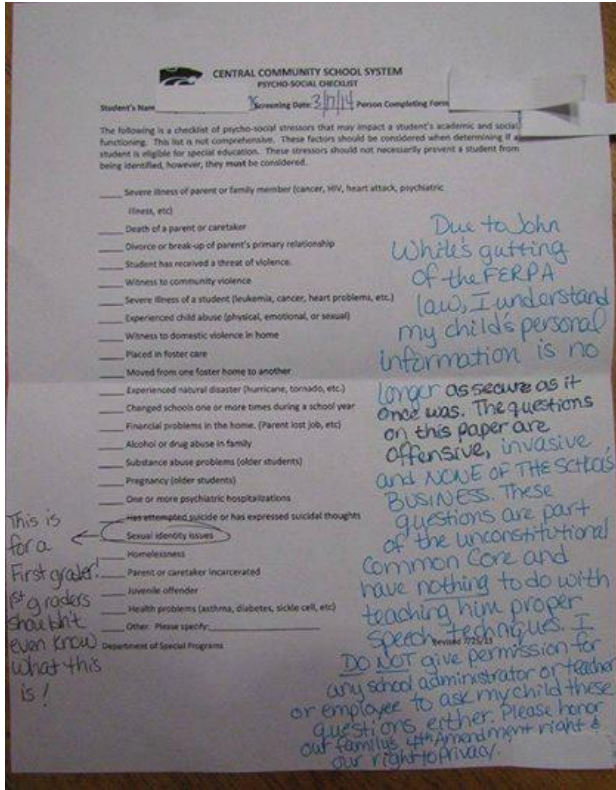 CENTRAL COMMUNITY SCHOOL SYSTEM
PSYCHO-SOCIAL CHECKLIST
Student's Name
Screening Date: 3/17/14 Person Completing Form
The following is a checklist of psycho-social stressors that may impact a student's academic and social
functioning. This list is not comprehensive. These factors should be considered when determining if a
student is eligible for special education. These stressors should not necessarily prevent a student from
being identified, however, they must be considered.
Severe illness of parent or family member (cancer, HIV, heart attack, psychiatric
illness, etc)
Death of a parent or caretaker
Divorce or break-up of parent's primary relationship
Student has received a threat of violence.
Witness to community violence
Severe illness of a student (leukemia, cancer, heart problems, etc.)
Experienced child abuse (physical, emotional, or sexual)
Witness to domestic violence in home
Placed in foster care
Moved from one foster home to another
Experienced natural disaster (hurricane, tornado, etc.)
Changed schools one or more times during a school year
Financial problems in the home. (Parent lost job, etc)
Alcohol or drug abuse in family
Substance abuse problems (older students)
Pregnancy (older students)
One or more psychiatric hospitalizations
Has attempted suicide or has expressed suicidal thoughts
Sexual identity issues
Homelessness
Parent or caretaker incarcerated
Juvenile offender
Health problems (asthma, diabetes, sickle cell, etc)
Other. Please specify:
Department of Special Programs
Revised
This is
for a
First grader!
1st graders
shouldn't
even know
what this
is!
Due to John
White's gutting
of the FERPA
law, I understand
my child's personal
information is no
longer as secure as it
once was. The questions
on this paper are
offensive, invasive
and NONE OF THE SCHOOL'S
BUSINESS. These
questions are part
of the unconstitutional
Common Core and
have nothing to do with
teaching him proper
speech techniques. I
DO NOT give permission for
any school administrator or teacher
or employee to ask my child these
questions either. Please honor
our family's 4th Amendment right &
our right to Privacy.